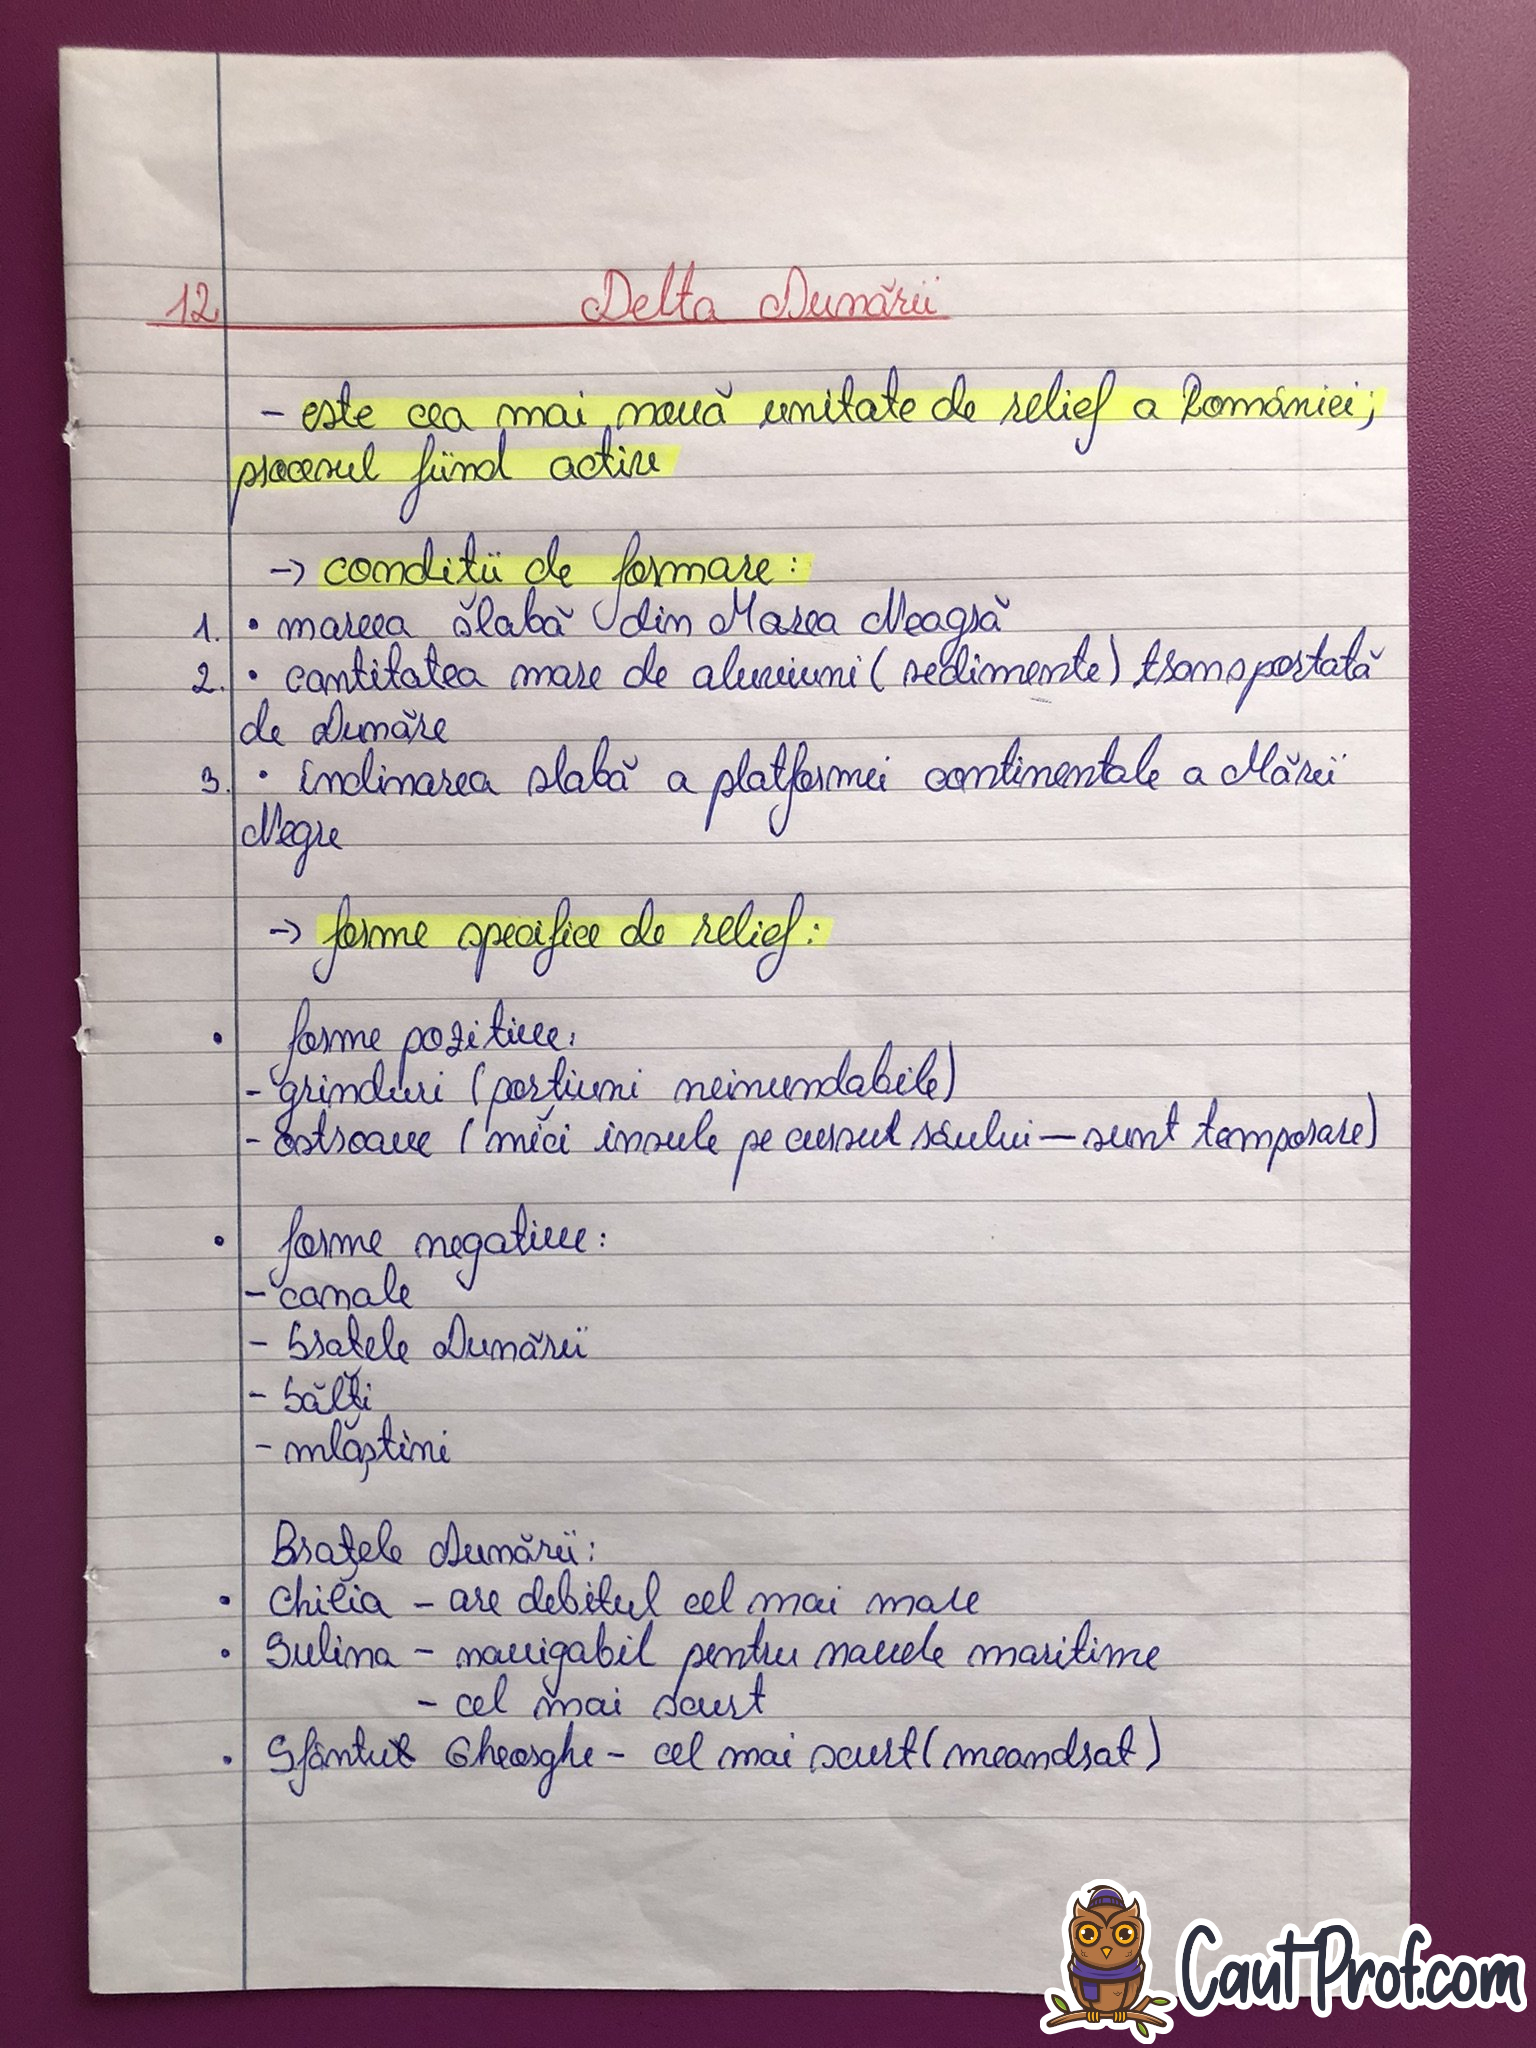 12. Delta Dunării
- este cea mai nouă unitate de relief a României;
procesul fiind activ
-> condiții de formare:
1. • mareea slabă din Marea Neagră
2. • cantitatea mare de aluviuni (sedimente) transportată
de Dunăre
3. • înclinarea slabă a platformei continentale a Mării
Negre
-> forme specifice de relief:
• forme pozitive:
- grinduri (porțiuni neinundabile)
- ostroave (mici insule pe cursul râului - sunt temporare)
• forme negative:
- canale
- brațele Dunării
- bălți
- mlaștini
Brațele Dunării:
• Chilia - are debitul cel mai mare
• Sulina - navigabil pentru navele maritime
- cel mai scurt
• Sfântul Gheorghe - cel mai scurt (meandrat)
CautProf.com